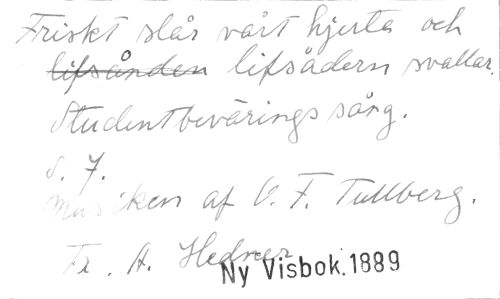 Friskt slår vårt hjerta och
lifsånden lifsådern svallar.
Studentbevärings sång.
s. 7.
Musiken af O. F. Tullberg.
Tr. A. Hedner
Ny Visbok. 1889